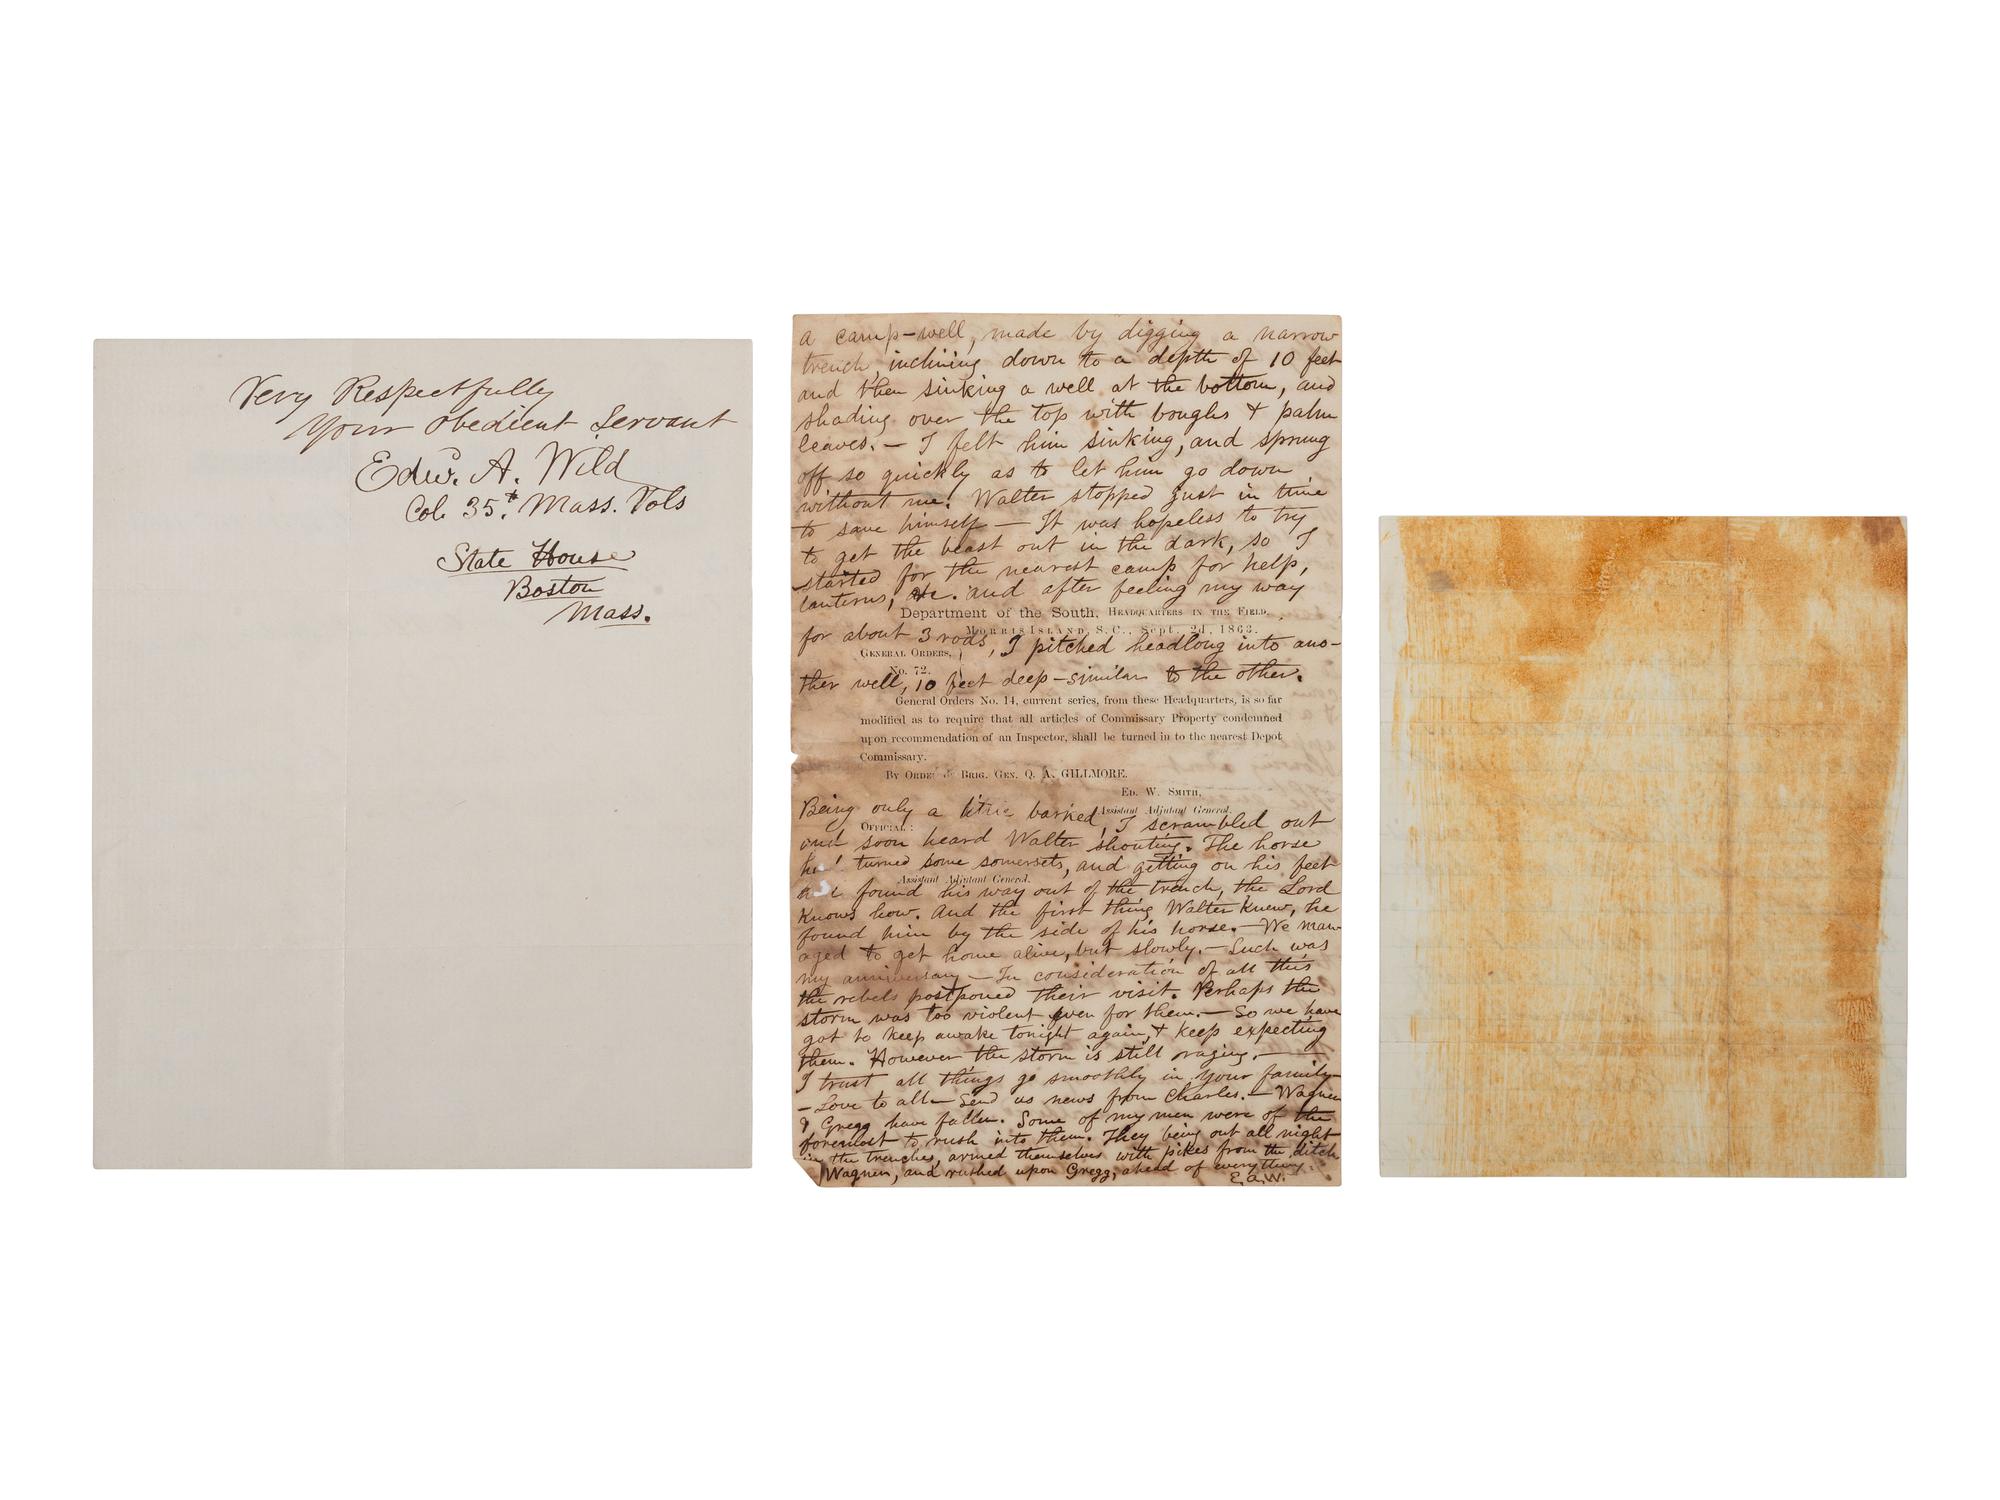 Very Respectfully
Your Obedient Servant
Edw. A. Wild
Col. 35t Mass. Vols
State House
Boston
Mass.
a camp-well, made by digging a narrow
trench, inclining down to a depth of 10 feet
and then sinking a well at the bottom, and
shading over the top with boughs & palm
leaves. — I felt him sinking, and sprung
off so quickly as to let him go down
without me. Walter stopped just in time
to save himself — It was hopeless to try
to get the beast out in the dark, so I
started for the nearest camp for help,
lanterns, &c. and after feeling my way
Department of the South, Headquarters in the Field,
Morris Island, S. C., Sept. 2d, 1863.
for about 3 rods, I pitched headlong into ano-
General Orders,
No. 72.
ther well, 10 feet deep — similar to the other.
General Orders No. 14, current series, from these Headquarters, is so far
modified as to require that all articles of Commissary Property condemned
upon recommendation of an Inspector, shall be turned in to the nearest Depot
Commissary.
By Order Brig. Gen. Q. A. GILLMORE.
Ed. W. Smith,
Assistant Adjutant General.
Being only a little barked, I scrambled out
Official:
and soon heard Walter shouting. The horse
had turned some somersets, and getting on his feet
Assistant Adjutant General.
had found his way out of the trench, the Lord
knows how. And the first thing Walter knew, he
found him by the side of his horse. — We man-
aged to get home alive, but slowly. — Such was
my anniversary — In consideration of all this
the rebels postponed their visit. Perhaps the
storm was too violent even for them. — So we have
got to keep awake tonight again, & keep expecting
them. However the storm is still raging. —
I trust all things go smoothly in your family
— Love to all — Send us news from Charles. — Wagner
& Gregg have fallen. Some of my men were of the
foremost to rush into them. They being out all night
in the trenches, armed themselves with pikes from the ditch
Wagner, and rushed upon Gregg, ahead of everything.
E. A. W.